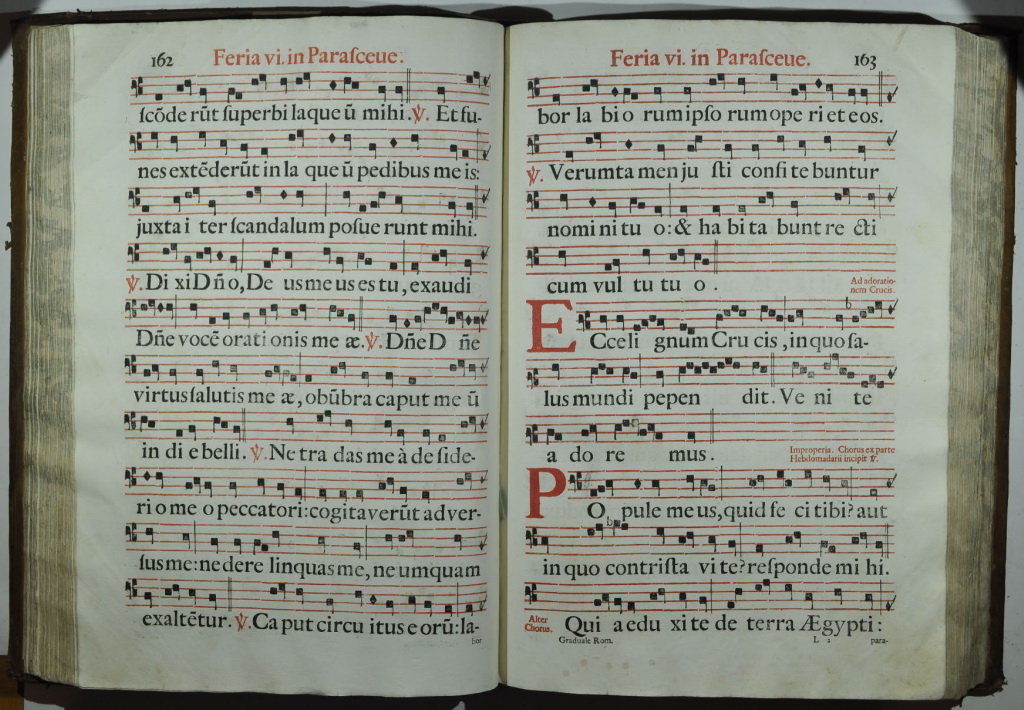 162 Feria vi. in Paraſceue.
ſcōde rūt ſuperbi laque ū mihi. ℣. Et fu-
nes extēderūt in la que ū pedibus me is:
juxta i ter ſcandalum poſue runt mihi.
℣. Di xi Dño, De us meus es tu, exaudi
Dñe vocē orati onis me æ. ℣. Dñe D ñe
virtus ſalutis me æ, obūbra caput me ū
in di e belli. ℣. Ne tra das me à de ſide-
ri o me o peccatori: cogitaverūt adver-
ſus me: ne dere linquas me, ne umquam
exaltētur. ℣. Ca put circu itus e orū: la-
bor
Feria vi. in Paraſceue. 163
bor la bi o rum ipſo rum ope ri et eos.
℣. Verumta men ju ſti confi te buntur
nomi ni tu o: & ha bi ta bunt re cti
cum vul tu tu o.
Ad adoratio-
nem Crucis.
ECce li gnum Cru cis, in quo ſa-
lus mundi pepen dit. Ve ni te
a do re mus.
Improperia. Chorus ex parte
Hebdomadarii incipit ℣.
PO pule me us, quid fe ci tibi? aut
in quo contriſta vi te? reſponde mi hi.
Alter
Chorus.
Qui a edu xi te de terra Ægypti:
Graduale Rom. L 2 para-